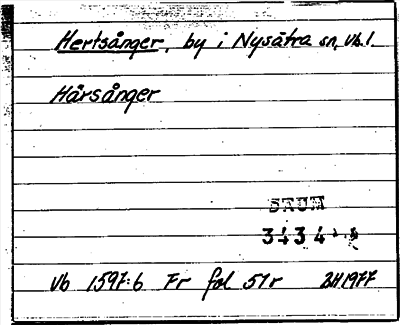 Hertsånger, by i Nysätra sn, Vb l.
Hårsånger
DAUM
3434
Vb 1597:6 Fr fol 51r BH 1977